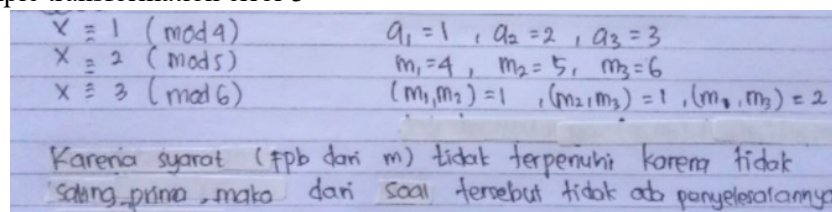 x ≡ 1 (mod 4) a₁ = 1 , a₂ = 2 , a₃ = 3
x ≡ 2 (mod 5) m₁ = 4 , m₂ = 5, m₃ = 6
x ≡ 3 (mod 6) (m₁, m₂) = 1 , (m₂, m₃) = 1 , (m₁, m₃) = 2
Karena syarat (fpb dari m) tidak terpenuhi karena tidak
saling prima, maka dari soal tersebut tidak ada penyelesaiannya